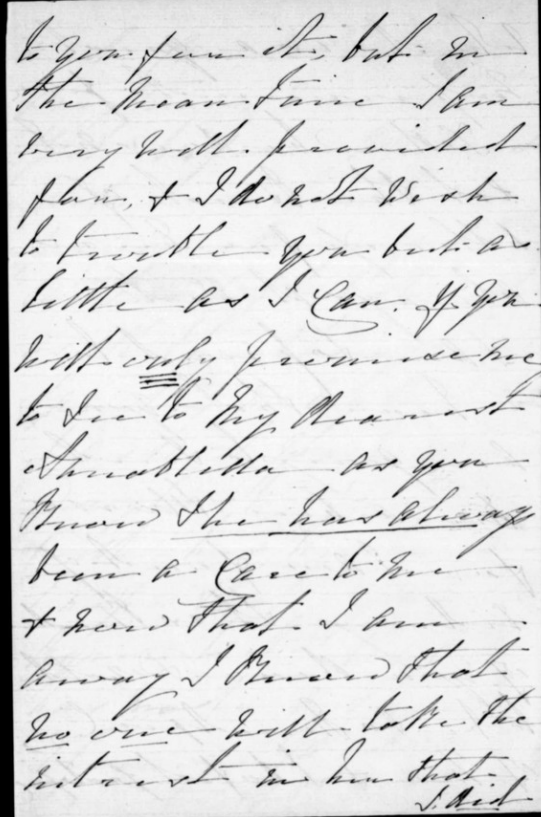 to you for it, but in
the mean time I am
very well provided
for, & I do not wish
to trouble you but as
little as I can. If you
will only promise me
to see to my dearest
as you
Know she has always
been a care to me
& now that I am
away I Know that
no one will take the
interest in her that
I did